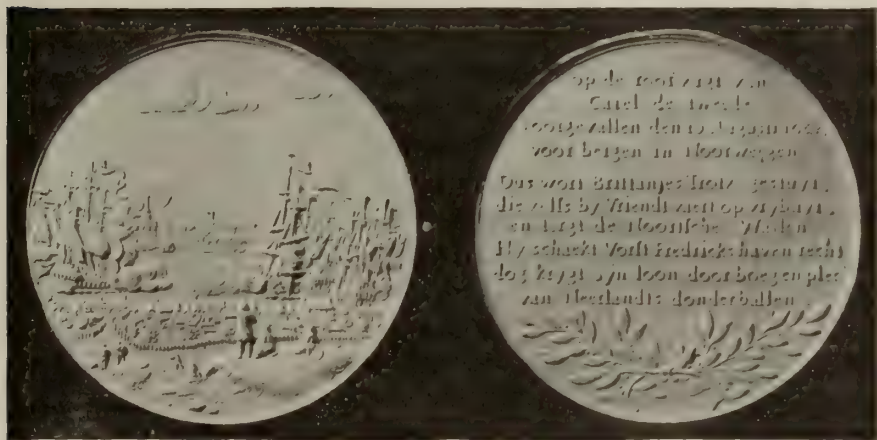 op de roofvaert van
Carel de tweede
voorgevallen den
voor bergen in Noorweggen
Dus wort Brittanjes Trotz gestuyt,
die selfs by Vriendt vaert op vrybuyt,
en tergt de Noortsche
Hy schaekt Vorst Fredricks haven recht
dog krygt zyn loon door boegen plecht
van Neerlandts donderballen